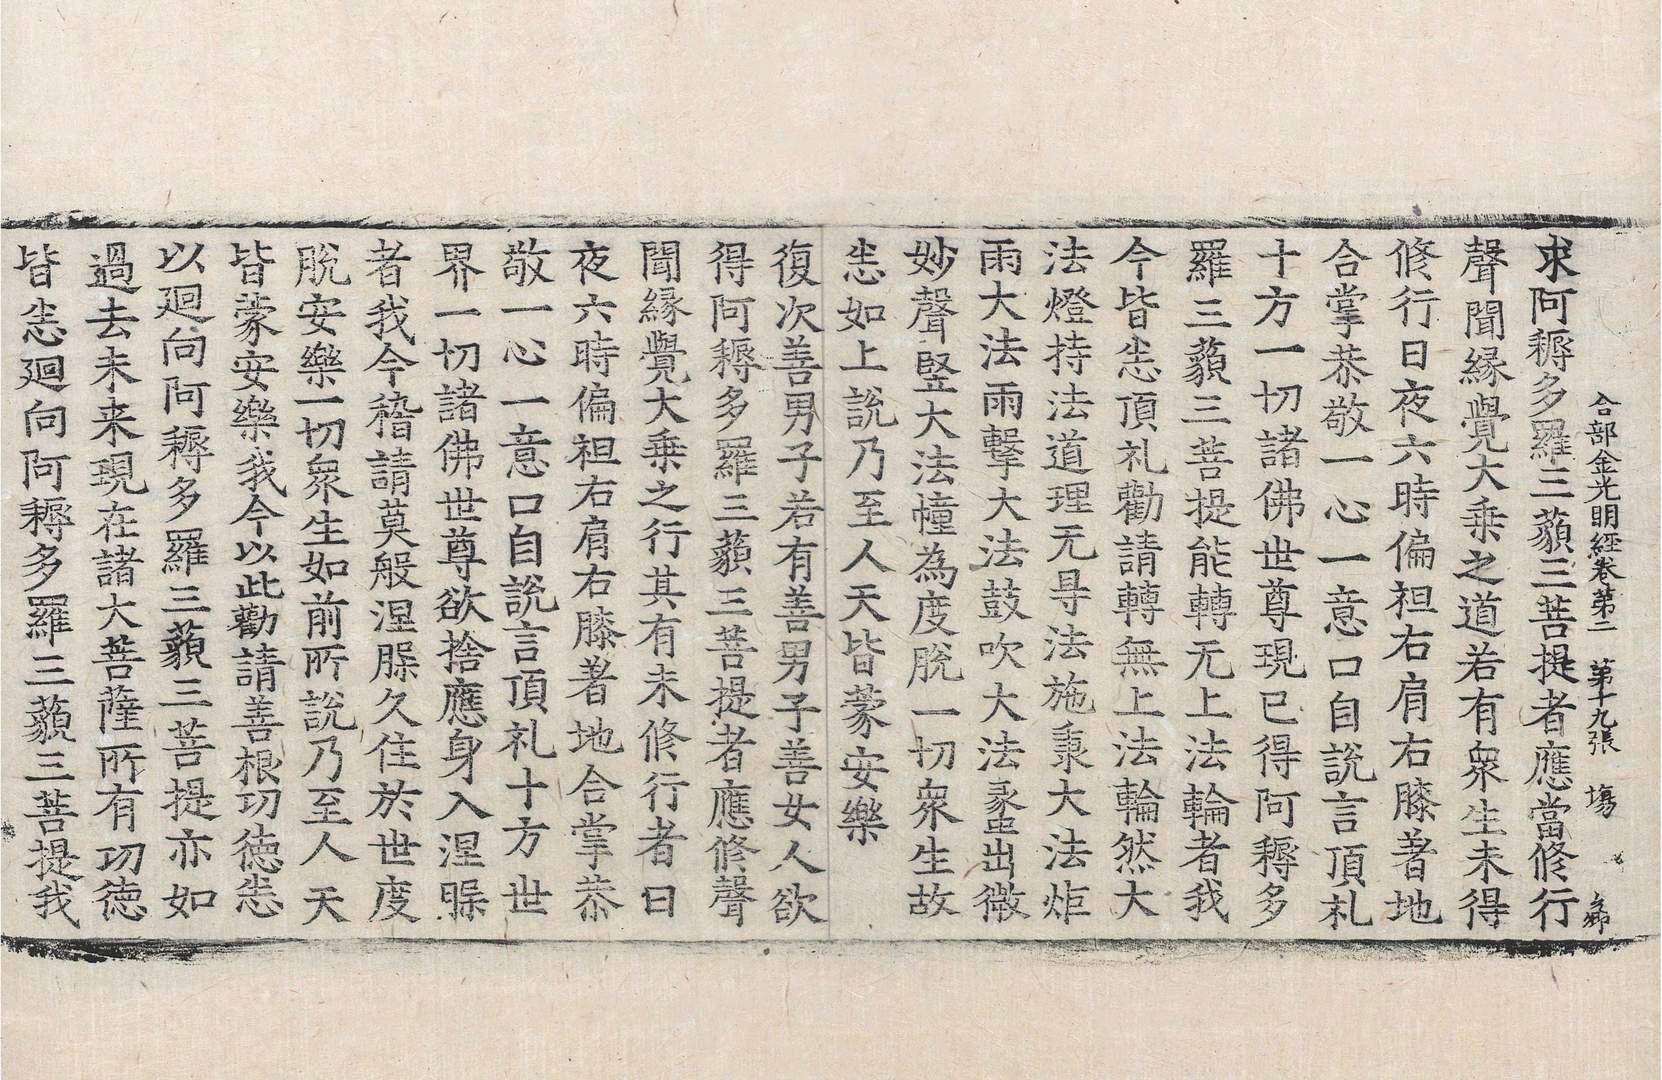 合部金光明經卷第二 第十九張 塲
求阿耨多羅三藐三菩提者應當修行
聲聞緣覺大乘之道若有衆生未得
修行日夜六時偏袒右肩右膝著地
合掌恭敬一心一意口自說言頂礼
十方一切諸佛世尊現已得阿耨多
羅三藐三菩提能轉无上法輪者我
今皆悉頂礼勸請轉無上法輪然大
法燈持法道理无㝵法施秉大法炬
雨大法雨擊大法鼓吹大法蠡出微
妙聲竪大法幢為度脫一切衆生故
悉如上說乃至人天皆蒙安樂
復次善男子若有善男子善女人欲
得阿耨多羅三藐三菩提者應修聲
聞緣覺大乘之行其有未修行者日
夜六時偏袒右肩右膝著地合掌恭
敬一心一意口自說言頂礼十方世
界一切諸佛世尊欲捨應身入涅槃
者我今稽請莫般涅槃久住於世度
脫安樂一切衆生如前所說乃至人天
皆蒙安樂我今以此勸請善根功德悉
以迴向阿耨多羅三藐三菩提亦如
過去未来現在諸大菩薩所有功德
皆悉迴向阿耨多羅三藐三菩提我